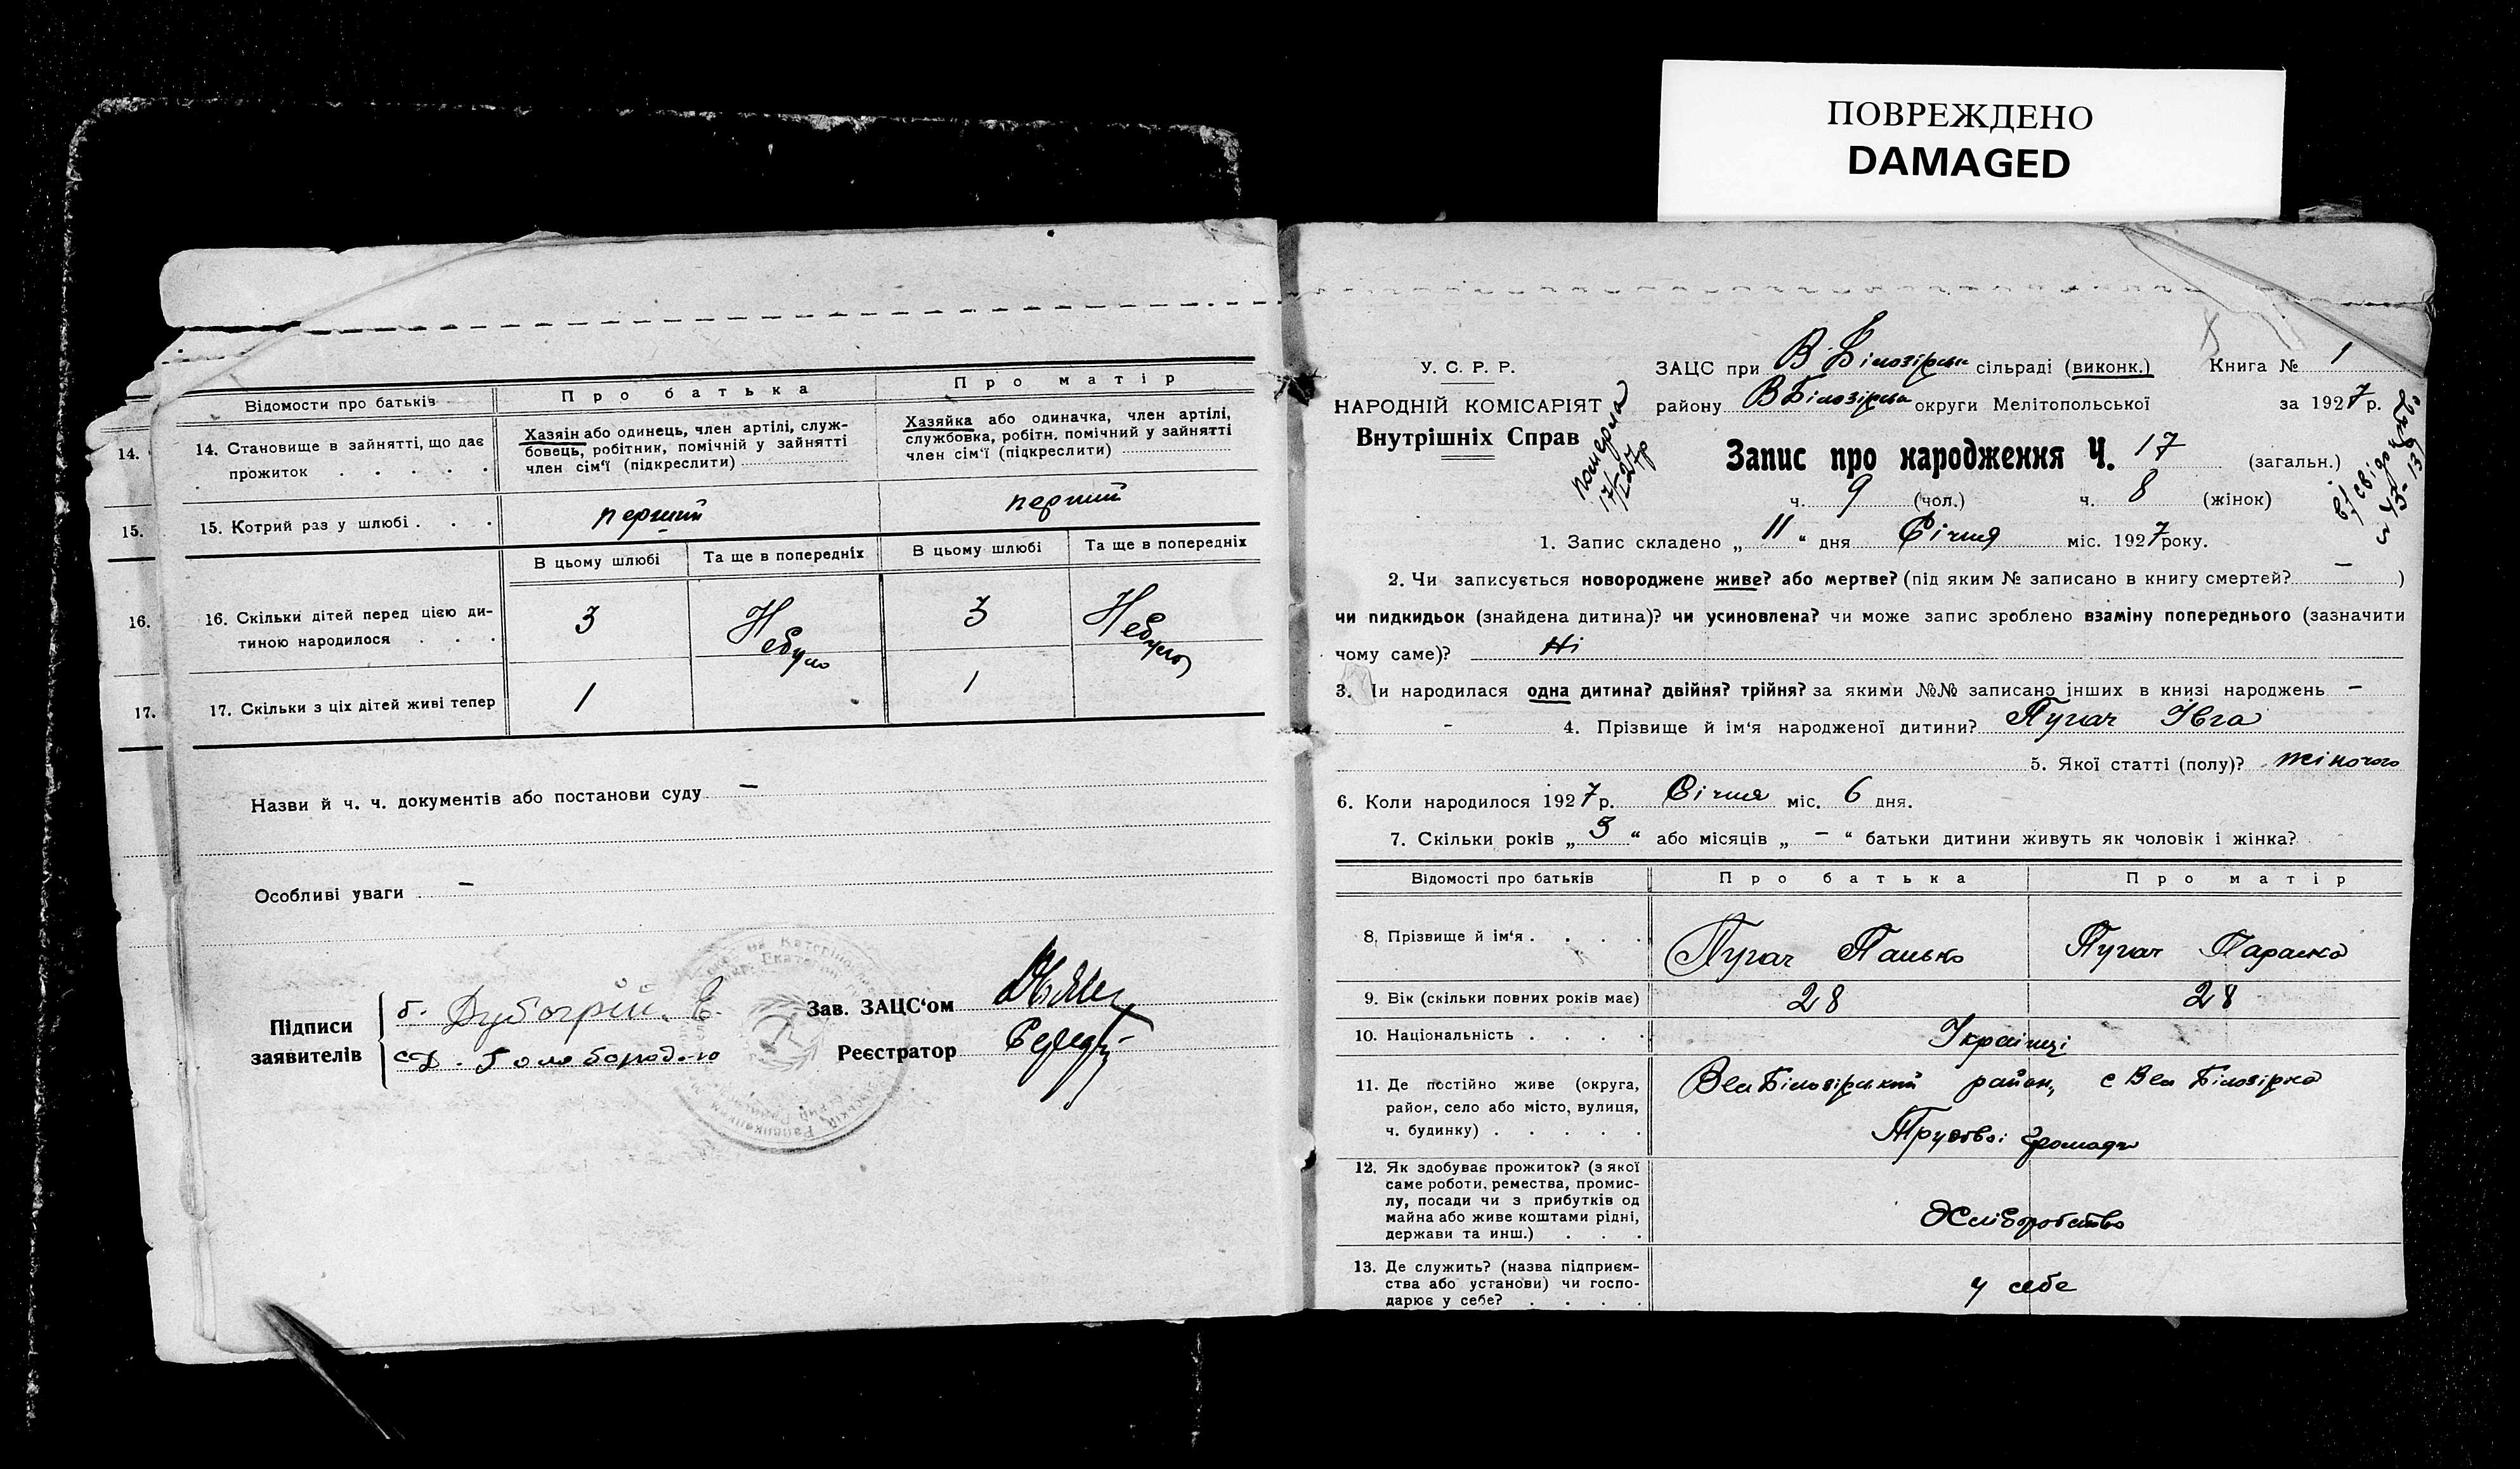 ПОВРЕЖДЕНО
DAMAGED
14.
15.
16.
17.
Відомости про батьків
Про батька
Про матір
14. Становище в зайнятті, що дає
прожиток . . . . .
Хазяін або одинець, член артілі, служ-
бовець, робітник, помічній у зайнятті
член сім'ї (підкреслити)
Хазяйка або одиначка, член артілі,
службовка, робітн. помічний у зайнятті
член сім'ї (підкреслити)
15. Котрий раз у шлюбі . . .
перший
перший
В цьому шлюбі
Та ще в попередніх
В цьому шлюбі
Та ще в попередніх
16. Скільки дітей перед цією ди-
тиною народилося . . .
3
Небуло
3
Небуло
17. Скільки з ціх дітей живі тепер
1
1
Назви й ч. ч. документів або постанови суду –
Особливі уваги –
Підписи
заявителів
б.
Е.
Голобородько
Зав. ЗАЦС'ом
Реєстратор
У. С. Р. Р.
НАРОДНІЙ КОМІСАРІЯТ
Внутрішніх Справ
померла
17/I 27р
ЗАЦС при В Білозірськ сільраді (виконк.)
Книга № 1
району ВБілозірськ округи Мелітопольської
за 1927 р.
Запис про народження Ч. 17 (загальн.)
ч. 9 (чол.) ч. 8 (жінок)
1. Запис складено „ 11 “ дня Січня міс. 1927 року.
2. Чи записується новороджене живе? або мертве? (під яким № записано в книгу смертей? – )
чи пидкидьок (знайдена дитина)? чи усиновлена? чи може запис зроблено взаміну попереднього (зазначити
чому саме)? Ні
3. Чи народилася одна дитина? двійня? трійня? за якими №№ записано інших в книзі народжень –
– 4. Прізвище й ім'я народженої дитини? Пугач Івга
5. Якої статті (полу)? жіночого
6. Коли народилося 1927 р. Січня міс. 6 дня.
7. Скільки років „ 5 “ або місяців „ – “ батьки дитини живуть як чоловік і жінка?
Відомості про батьків
Про батька
Про матір
8. Прізвище й ім'я . . . .
Пугач Панько
Пугач Параска
9. Вік (скільки повних років має)
28
28
10. Національність . . . .
Українці
11. Де постійно живе (округа,
район, село або місто, вулиця,
ч. будинку) . . . . .
ВелБілозірський район, с Вел Білозірка
Трудової громади
12. Як здобуває прожиток? (з якої
саме роботи, ремества, промис-
лу, посади чи з прибутків од
майна або живе коштами рідні,
держави та инш.) . . .
Хліборобство
13. Де служить? (назва підприєм-
ства або установи) чи госпо-
дарює у себе? . . . .
у себе